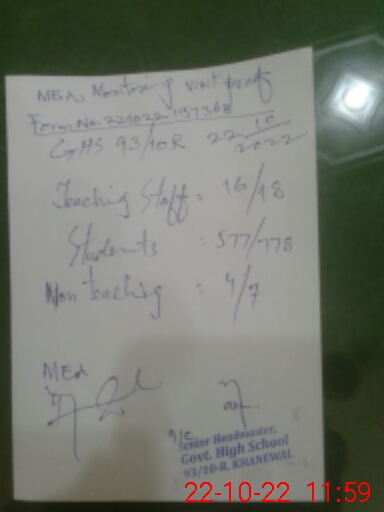 MEAs Monitoring visit proof
Form No. 221022-1157368
GHS 93/10R 22/10/2022
Teaching Staff = 16/18
Students : 577/778
Non teaching : 4/7
MEA
I/C
Senior Headmaster,
Govt. High School
93/10-R. KHANEWAL
22-10-22 11:59